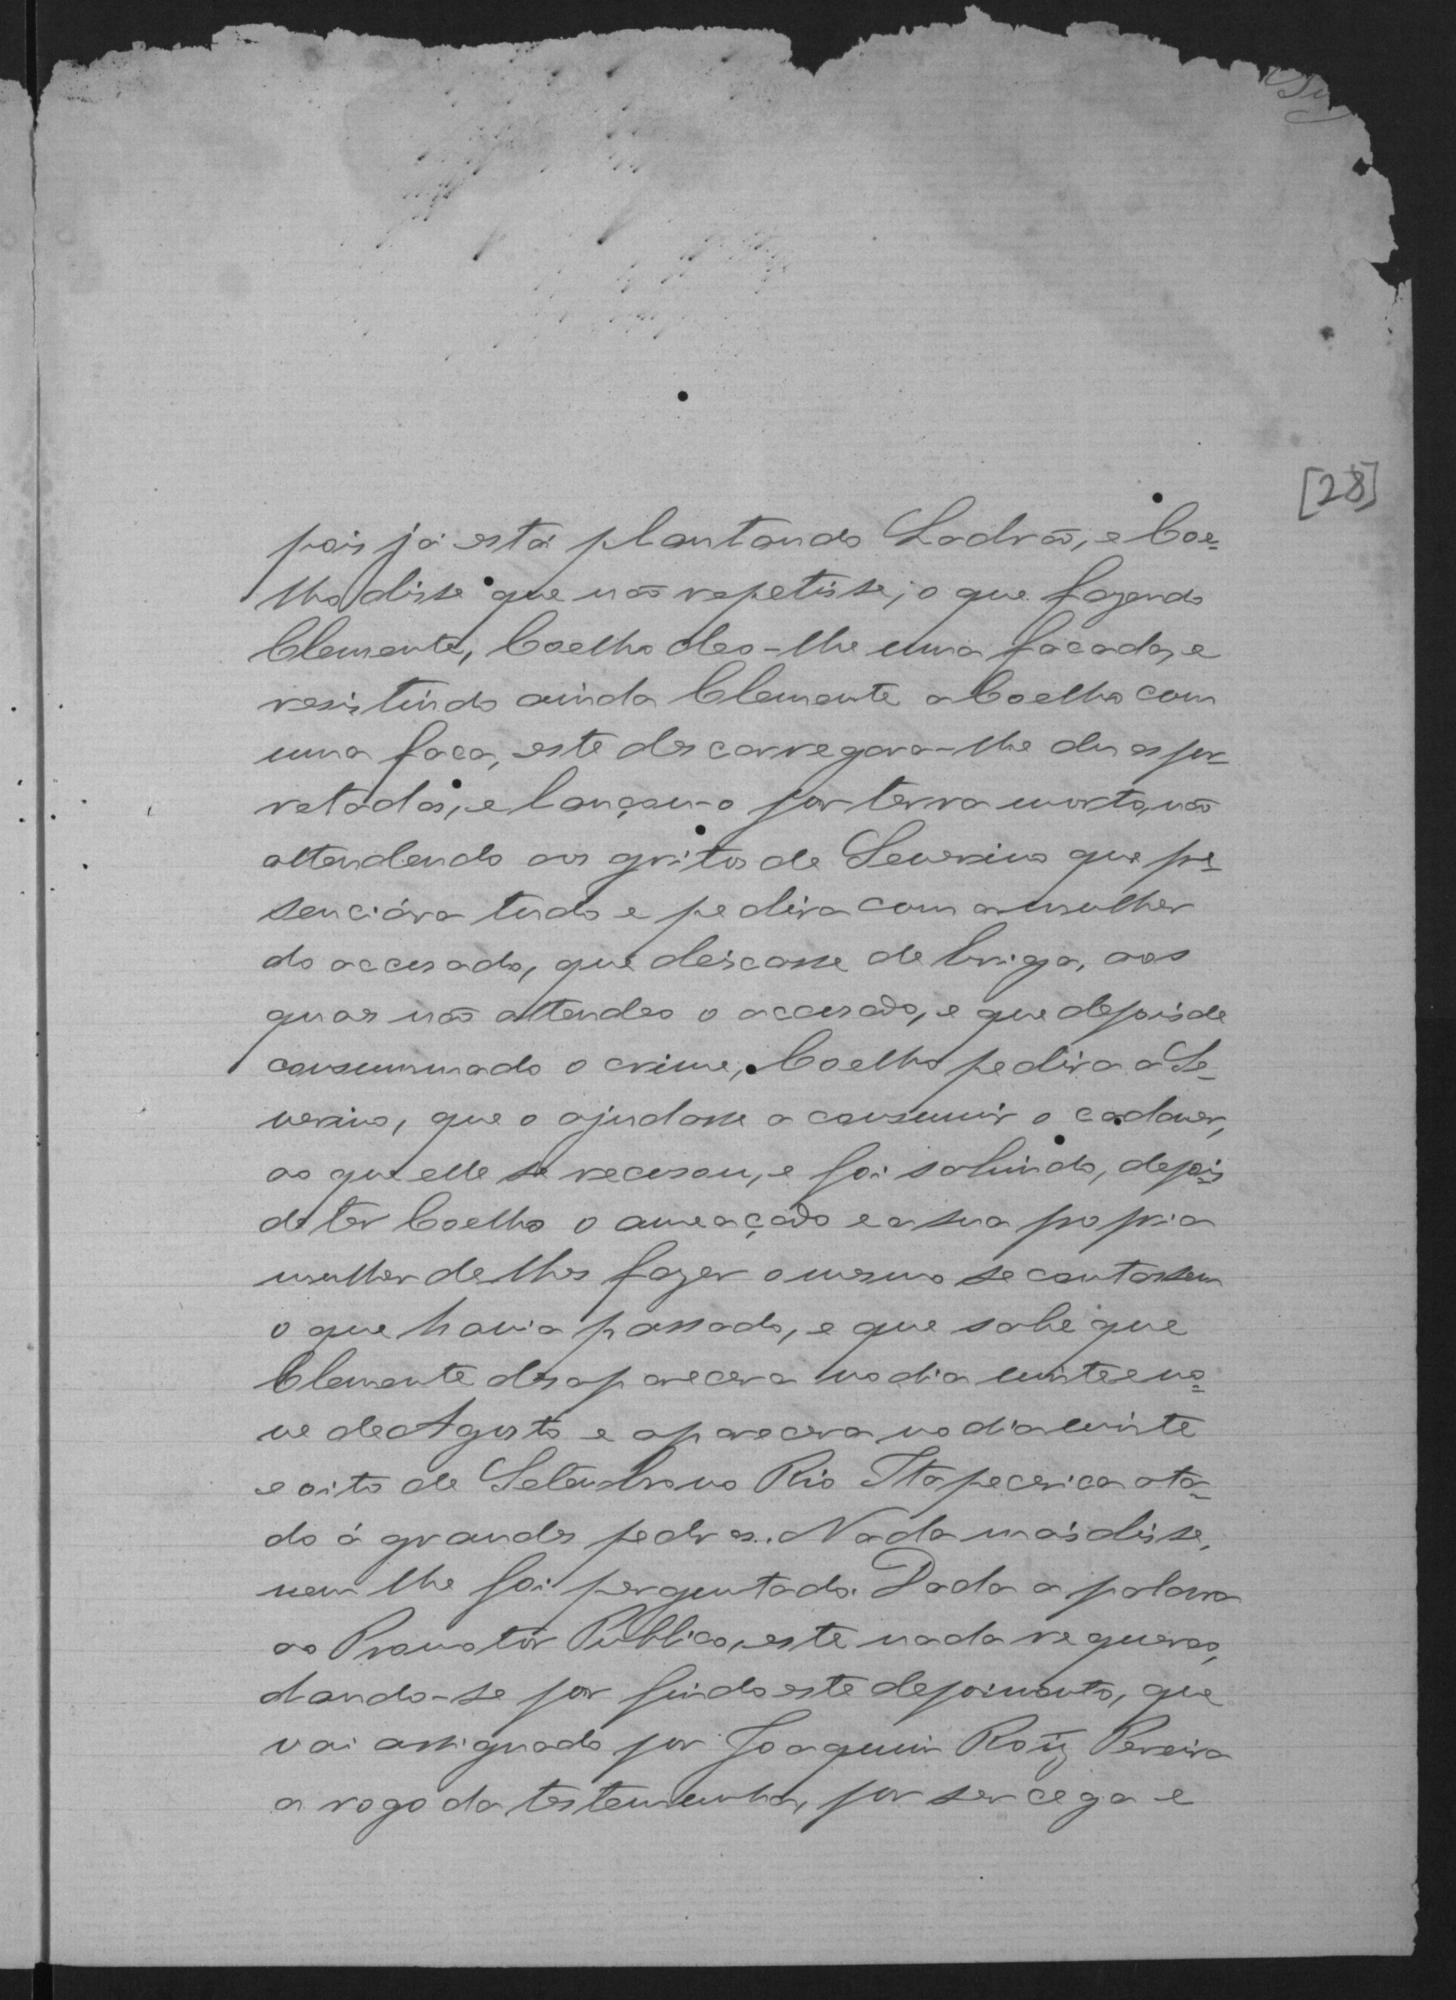 [28]
pois já está plantando Ladrão, e Coe=
lho disse que não repetisse; o que fazendo
Clemente, Coelho deo-lhe uma facada, e
resistindo ainda Clemente a Coelho com
uma faca, este descarregara-lhe duas por-
retadas, e lançou-o por terra morto, não
attendendo aos gritos de Severino que pre-
senciára tudo e pedira com a mulher
do accusado, que deixasse de briga, aos
quaes não attendeo o accusado, e que depois de
consummado o crime, Coelho pedira a Se-
verino, que o ajudasse a consumir o cadaver,
ao que elle se recusou, e foi sahindo, depois
de ter Coelho o ameaçado e a sua propria
mulher de lhes fazer o mesmo se contassem
o que havia passado, e que sabe que
Clemente desaparecera no dia vinte e no=
ve de Agosto e aparecera no dia vinte
e oito de Setembro no Rio Itapecerica ata-
do á grandes pedras. Nada mais disse,
nem lhe foi perguntado. Dada a palavra
ao Promotor Publico, este nada requereo,
dando-se por findo este depoimento, que
vai assignado por Joaquim Roiz Pereira
a rogo da testemunha, por ser cega e